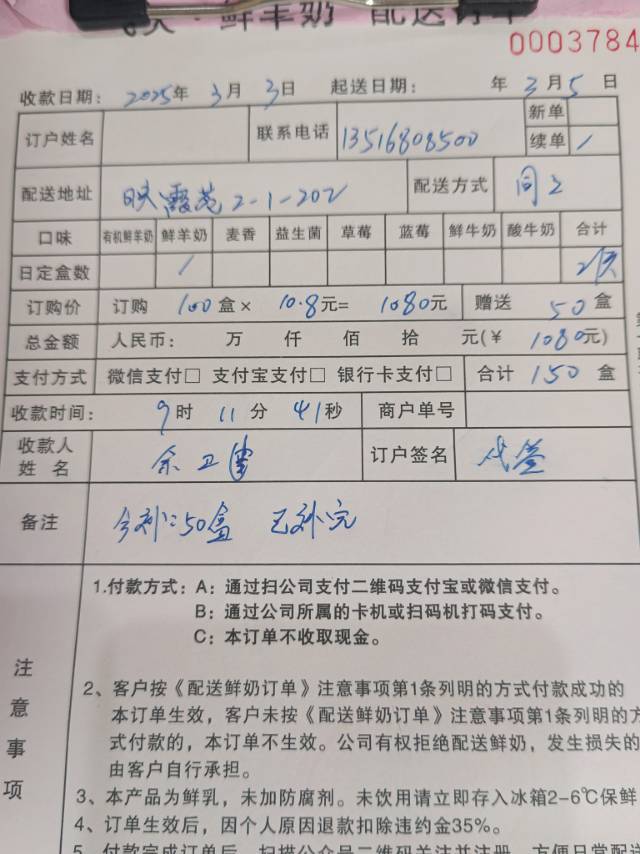 鲜羊奶 配送订单
0003784
收款日期： 2025年 3月 3日 起送日期： 年 3月 5日
订户姓名 联系电话 13516808500 新单
续单 /
配送地址 映霞苑 2-1-202 配送方式 同上
口味 有机鲜羊奶 鲜羊奶 麦香 益生菌 草莓 蓝莓 鲜牛奶 酸牛奶 合计
日定盒数 /
订购价 订购 100 盒× 10.8元= 1080元 赠送 50 盒
总金额 人民币： 万 仟 佰 拾 元(￥ 1080元)
支付方式 微信支付□ 支付宝支付□ 银行卡支付□ 合计 150 盒
收款时间： 9时 11分 41秒 商户单号
收款人姓名 余卫 订户签名 代签
备注 50盒
注意事项
1.付款方式：A：通过扫公司支付二维码支付宝或微信支付。
B：通过公司所属的卡机或扫码机打码支付。
C：本订单不收取现金。
2、客户按《配送鲜奶订单》注意事项第1条列明的方式付款成功的
本订单生效，客户未按《配送鲜奶订单》注意事项第1条列明的方
式付款的，本订单不生效。公司有权拒绝配送鲜奶，发生损失的
由客户自行承担。
3、本产品为鲜乳，未加防腐剂。未饮用请立即存入冰箱2-6℃保鲜
4、订单生效后，因个人原因退款扣除违约金35%。
5、付款完成订单后，扫描公众号二维码关注并注册，方便日常配送